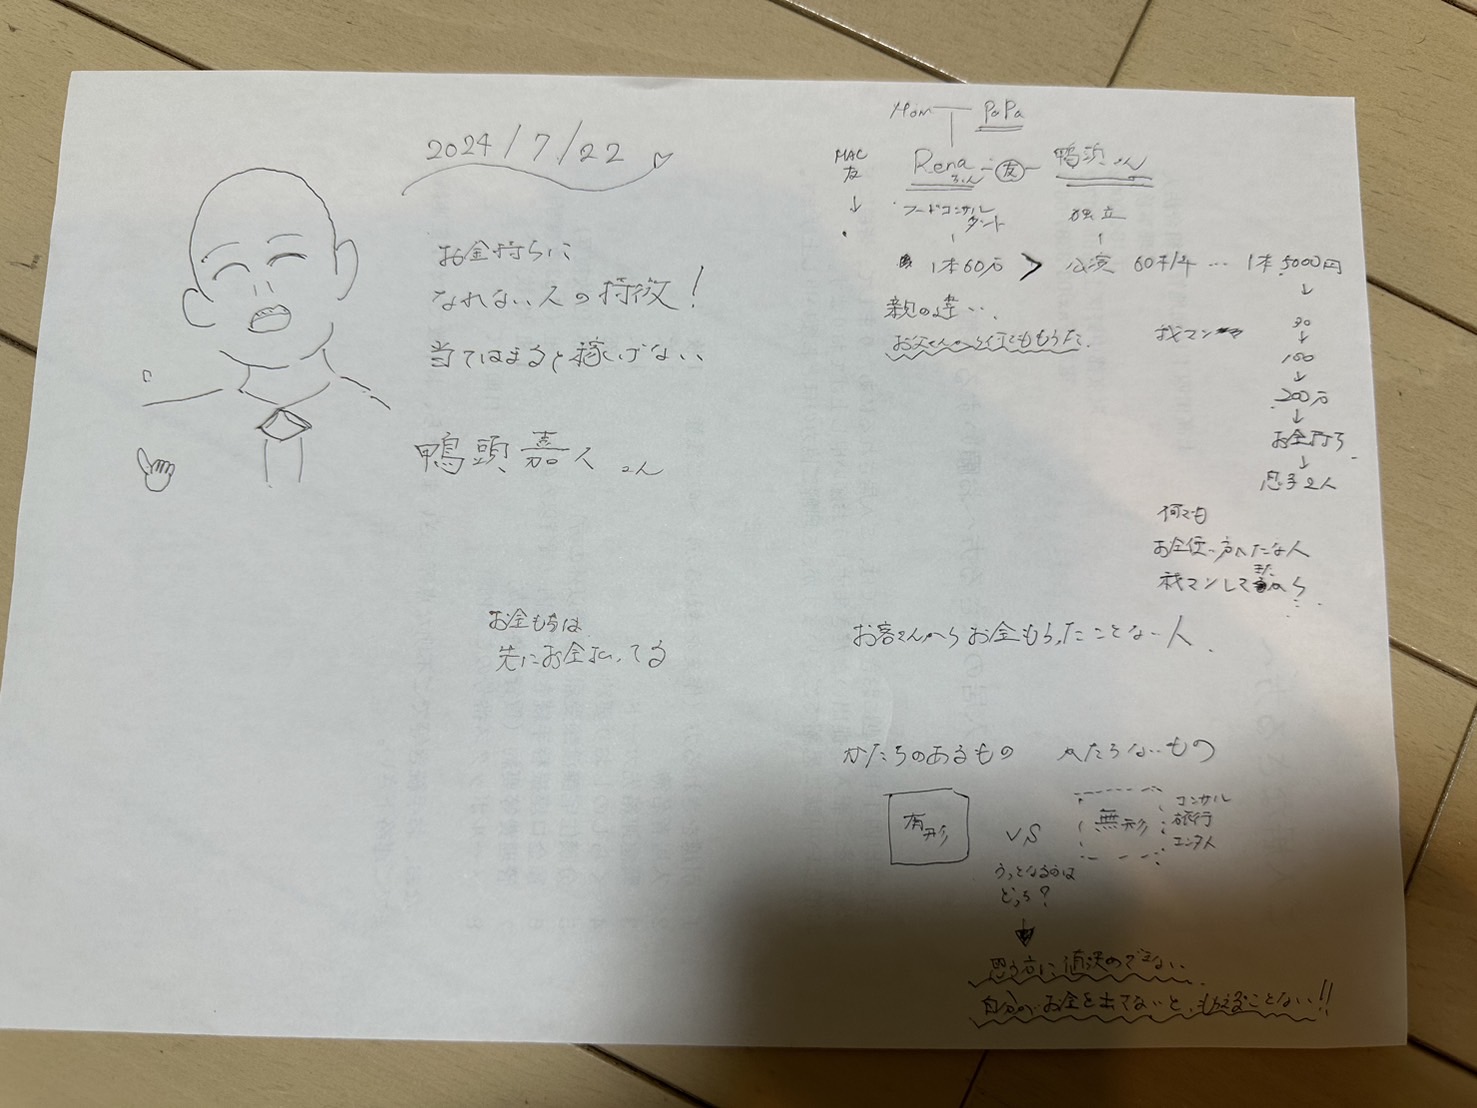 2024/7/22
お金持ちに
なれない人の特徴!
当てはまると稼げない
鴨頭嘉人さん
お金もちは
先にお金払ってる
Mom PaPa
MAC
友
Rena
さん
友
鴨頭さん
フードコンサル
タント
独立
1本60万 > 公演 60本/年 … 1本 5000円
30
100
200万
お金持ち
息子2人
親の違い…
お父さんから何でももらうた.
我マン
何でも
お金使い方へたな人
我マンして から
お客さんからお金もらったことない人.
かたちのあるもの かたちないもの
有形
VS
無形
コンサル
旅行
エンタメ
うっとなるのは
どっち?
思う方に値決めできない
自分の、お金を出てないと、もらえることない!!